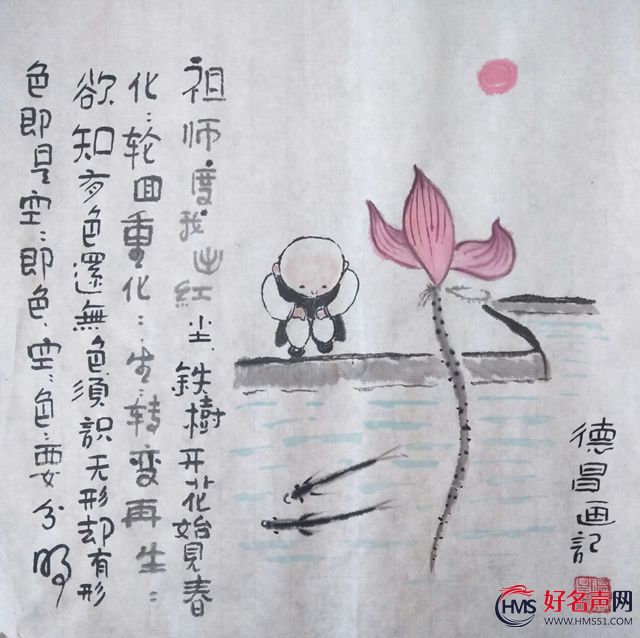 祖师度我出红尘鉄樹开花始見春
化：轮回重化：：生：转变再生：：
欲知有色還無色須识无形却有形
色即是空：即色、空：色：要分明
德昌画记
HMS 好名声网
WWW.HMS51.COM